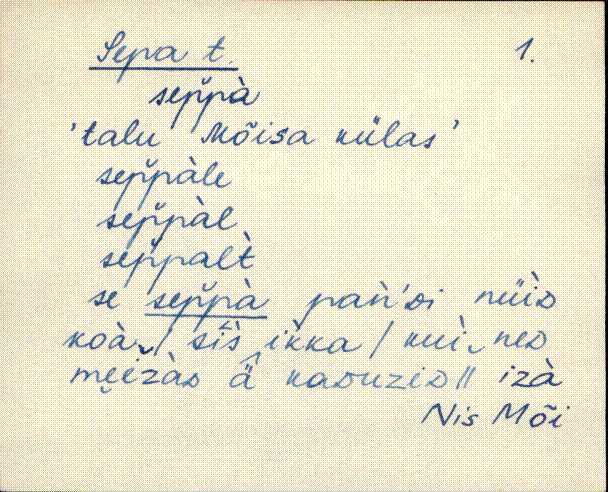 Sepa t. 1.
sep̆pà
'talu Mõisa külas'
sep̆pàle
sep̆pàl
sep̆palt̀
se sep̆pà pań'di nüìd
koà / sīs̀ ikka / kuì neD
mēīzàD ä̀ kaDuzìD // izà
Nis Mõi